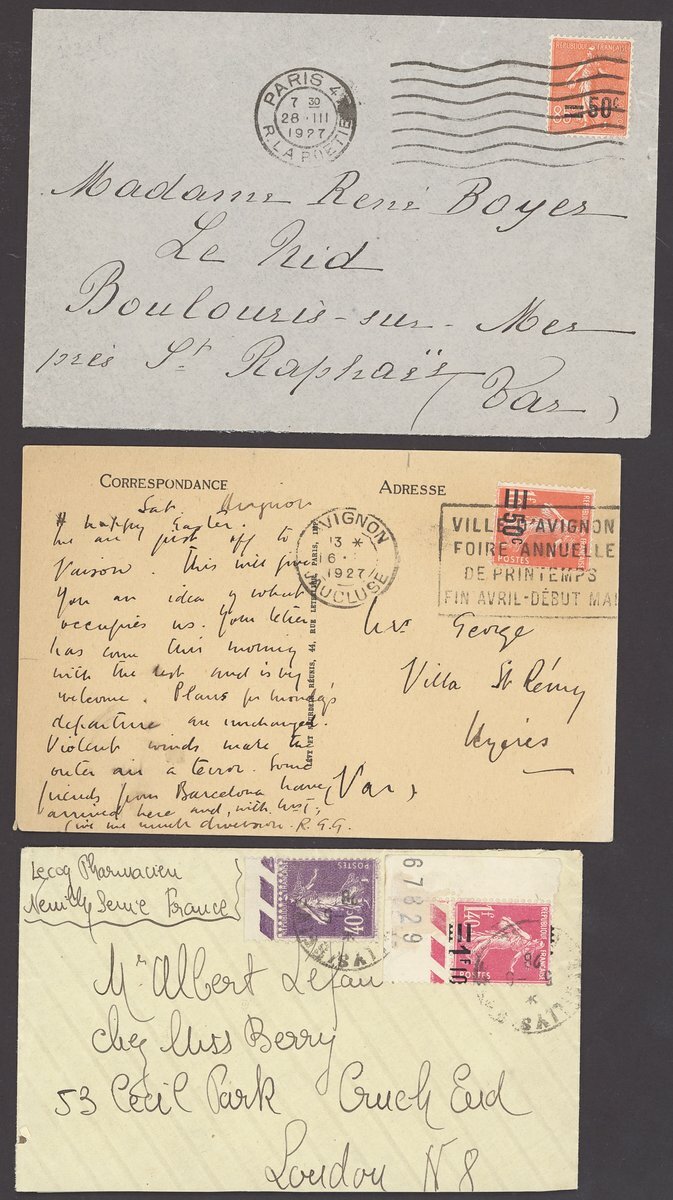 PARIS 47
7 30
28 · III
1927
R. LA BOËTIE
REPUBLIQUE FRANÇAISE
85c
=50c
Madame René Boyer
Le Nid
Boulouris-sur-Mer
près St Raphaël
(Var)
CORRESPONDANCE
ADRESSE
Sat Avignon
A happy Easter.
We are just off to
Vaison this will give
you an idea of what
occupies us. Your letter
has come this morning
with the rest and is very
welcome. Plans for monday's
departure are unchanged.
Violent winds make the
outer air a terror. Some
friends from Barcelona have
arrived here and, with
give me much diversion. R.G.G.
LÉVY ET NEURDEIN RÉUNIS, 44, RUE LETELLIER, PARIS
AVIGNON
13 *
16
1927
VAUCLUSE
50c
POSTES
VILLE D'AVIGNON
FOIRE ANNUELLE
DE PRINTEMPS
FIN AVRIL-DÉBUT MAI
Mrs George
Villa St Rémy
Hyères
(Var)
Lecoq Pharmacien
Neuilly Seine France
POSTES
40c
28
67829
REPUBLIQUE FRANÇAISE
1f40
POSTES
=1f10
28
Mr Albert Lefau
chez Miss Berry
53 Cecil Park Cruch End
London N8